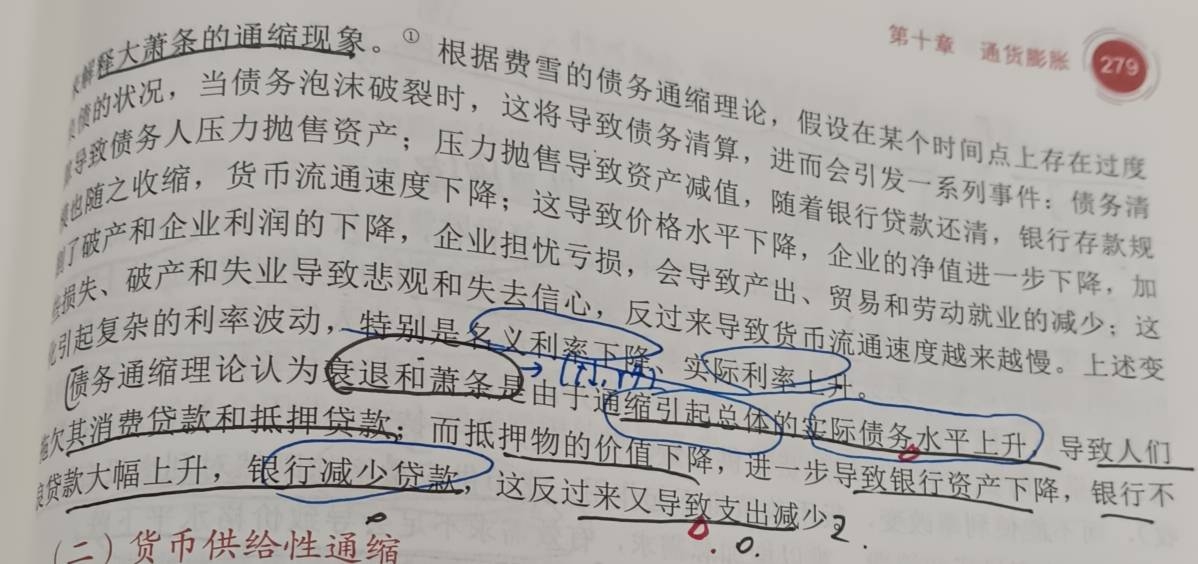 第十章 通货膨胀 279
来解释大萧条的通缩现象。① 根据费雪的债务通缩理论，假设在某个时间点上存在过度
负债的状况，当债务泡沫破裂时，这将导致债务清算，进而会引发一系列事件：债务清
导致债务人压力抛售资产；压力抛售导致资产减值，随着银行贷款还清，银行存款规
模也随之收缩，货币流通速度下降；这导致价格水平下降，企业的净值进一步下降，加
剧了破产和企业利润的下降，企业担忧亏损，会导致产出、贸易和劳动就业的减少；这
些损失、破产和失业导致悲观和失去信心，反过来导致货币流通速度越来越慢。上述变
化引起复杂的利率波动，特别是名义利率下降、实际利率上升。
债务通缩理论认为衰退和萧条是由于通缩引起总体的实际债务水平上升，导致人们
拖欠其消费贷款和抵押贷款；而抵押物的价值下降，进一步导致银行资产下降，银行不
良贷款大幅上升，银行减少贷款，这反过来又导致支出减少。
（二）货币供给性通缩